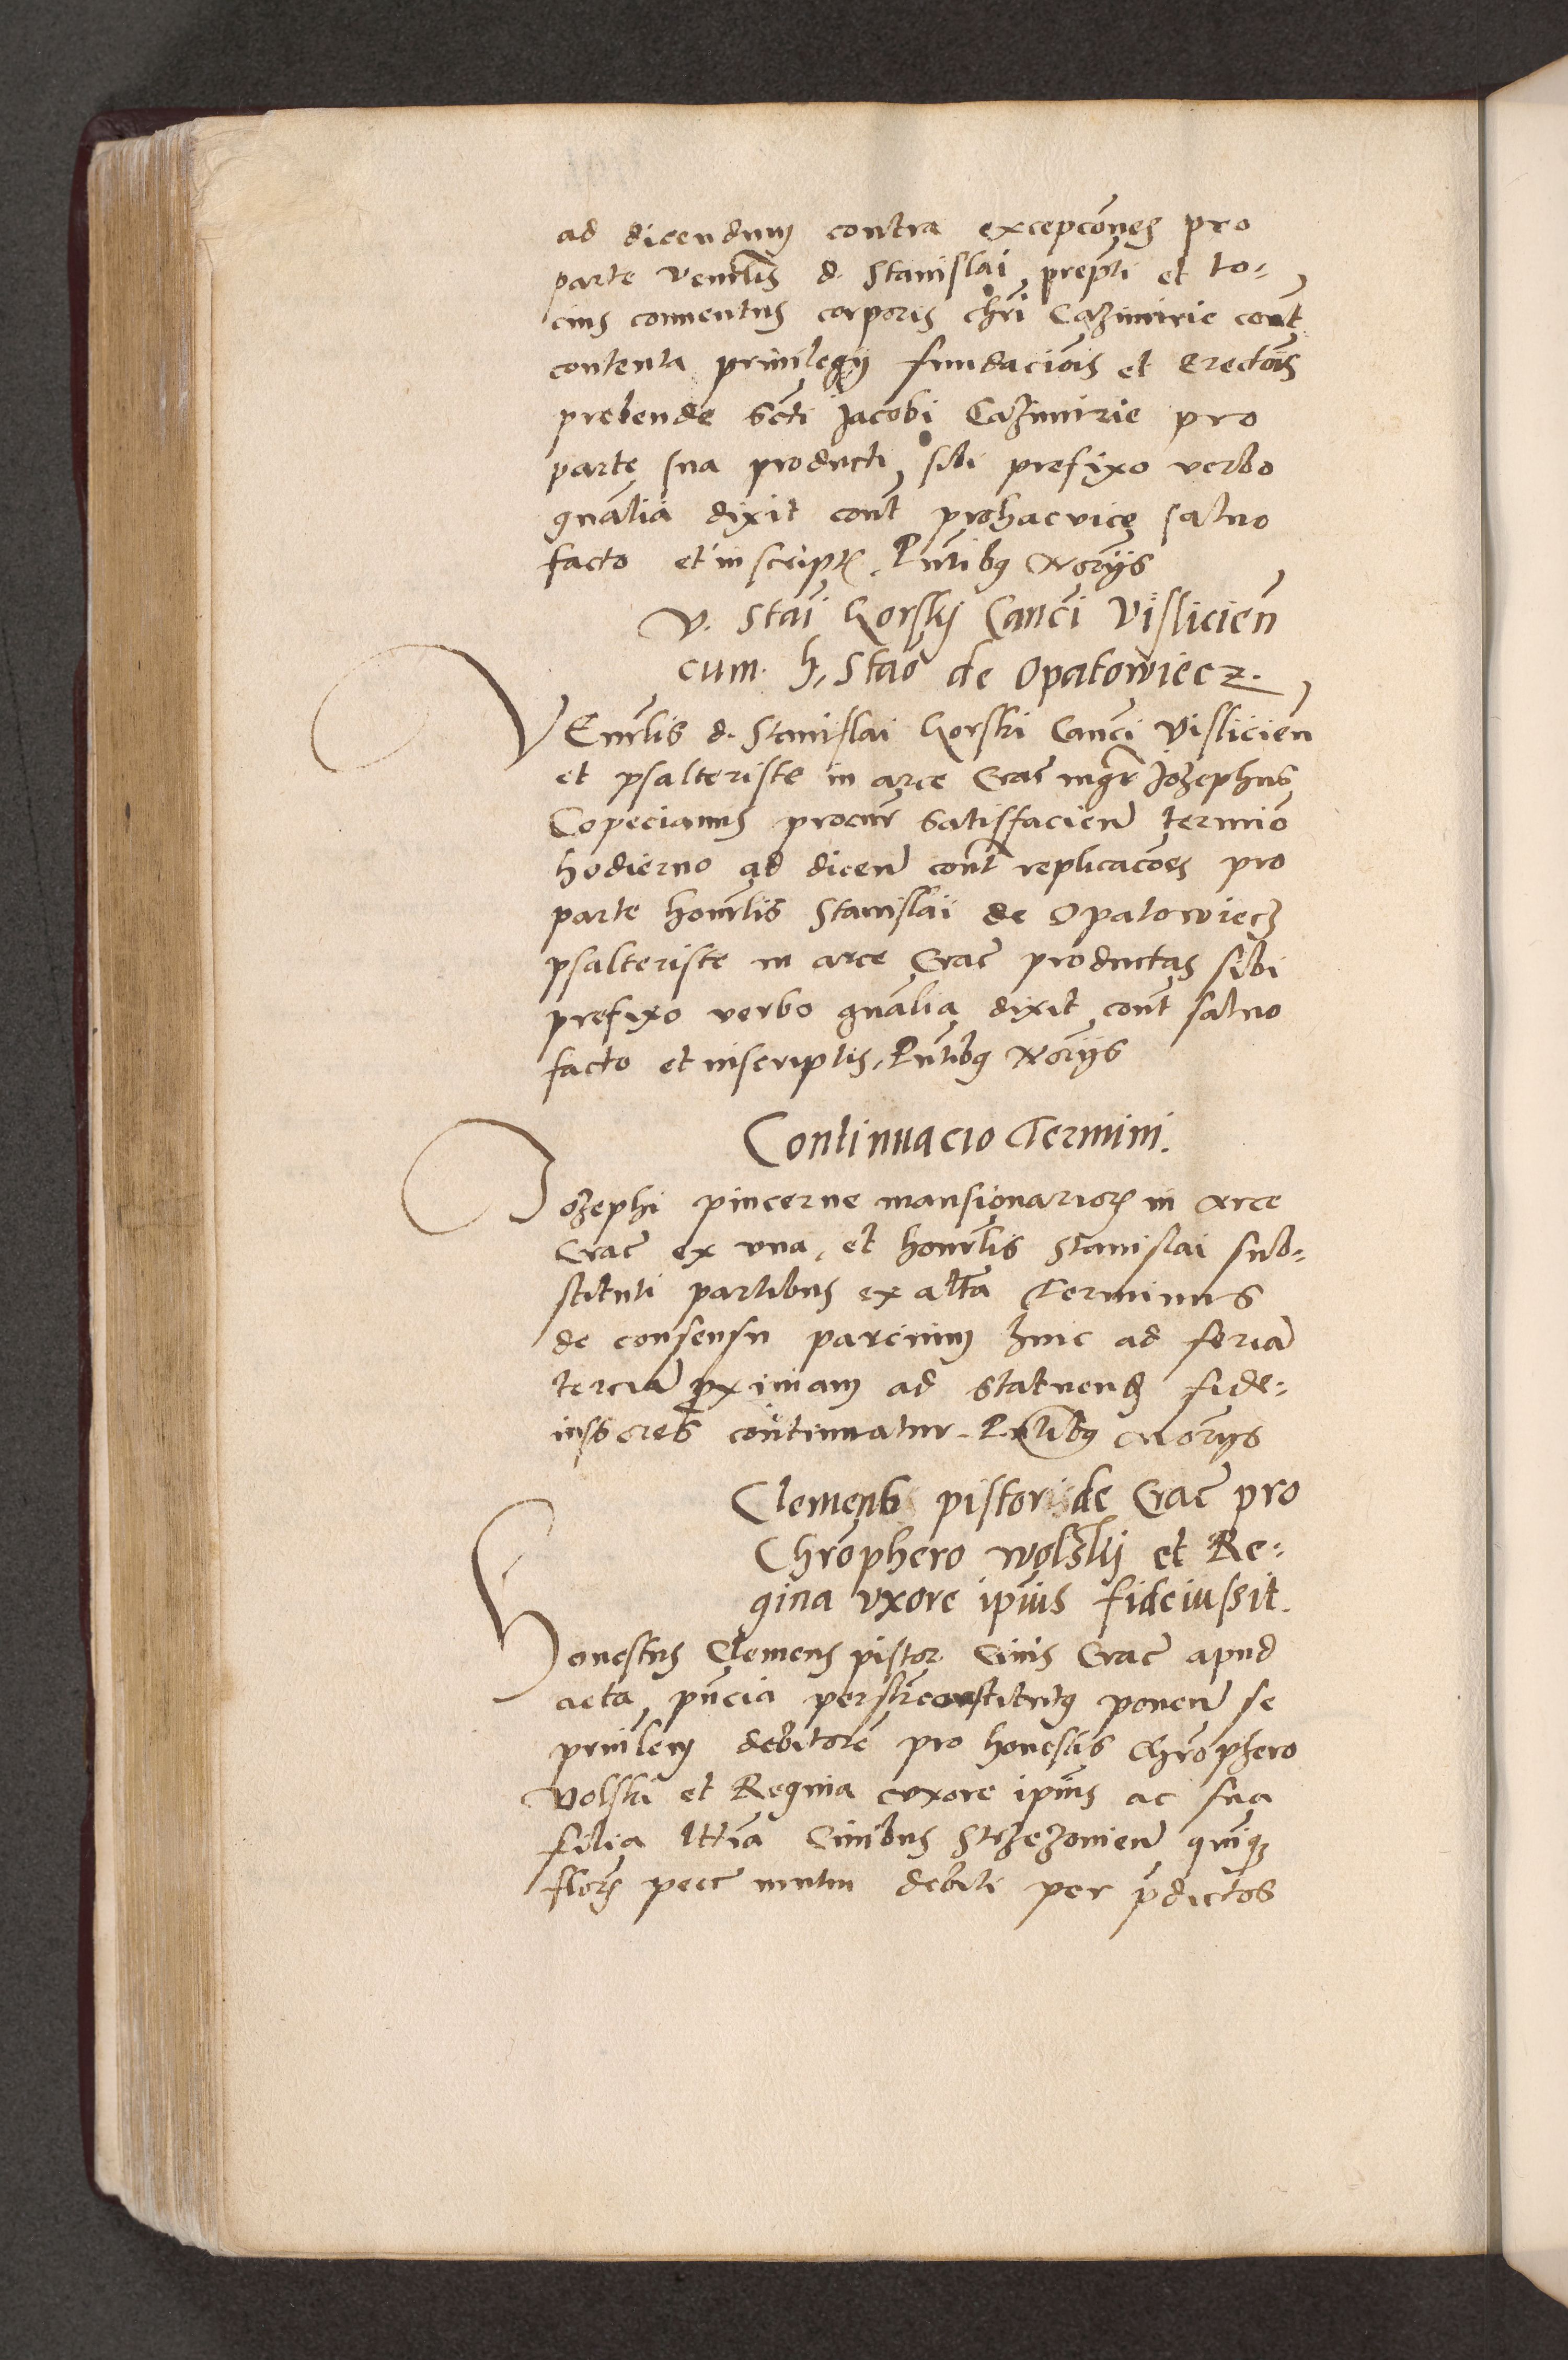 ad dicendum contra excepcōnes pro
parte venrlis d. Stanislai prepti et to-
cius conuentus corporis chri Cazimirie cont
contenta priuilegij fundaciois et Erectōis
prebende scti Jacobi Cazimirie pro
parte sua producti sibi prefixo verbo
gnālia dixit cont pro hac vice saluo
facto et in scriptis. Pntibus Notrijs
V. Stai Gorskj Canci Vislicien
cum h. Stao de Opatowiecz.
VEnrlis d. Stanislai Gorski Canci Vislicien
et psalteriste in arce Crac mgr Jozephus
Copecianus procur satisfacien termio
hodierno ad dicen cont replicacoēs pro
parte honrlis Stanislai de Opatowiecz
psalteriste in arce Crac productas sibi
prefixo verbo gnālia dixit cont saluo
facto et in scriptis. Pntibus Notrijs
Continuacio Termini.
Jozephi pincerne mansionarior in Arce
Crac ex vna, et honrlis Stanislai sub-
stituti partibus ex altā Terminus
de consensu parcium hinc ad feriā
terciā proximam ad statuend fide-
iussores continuatur. Pntibus Notrijs
Clementis pistoris de Crac pro
Chrophero Wolski et Re-
gina vxore ipius fideiussit.
Honestus Clemens pistor Ciuis Crac apud
acta pncia personlr constitutus ponen se
prinlem debitorē pro honestis Chrophero
Wolski et Regina vxore ipius ac sua
filia lttīa Ciuibus Strzezouien quinque
flor pecc mutui debiti per pdictos